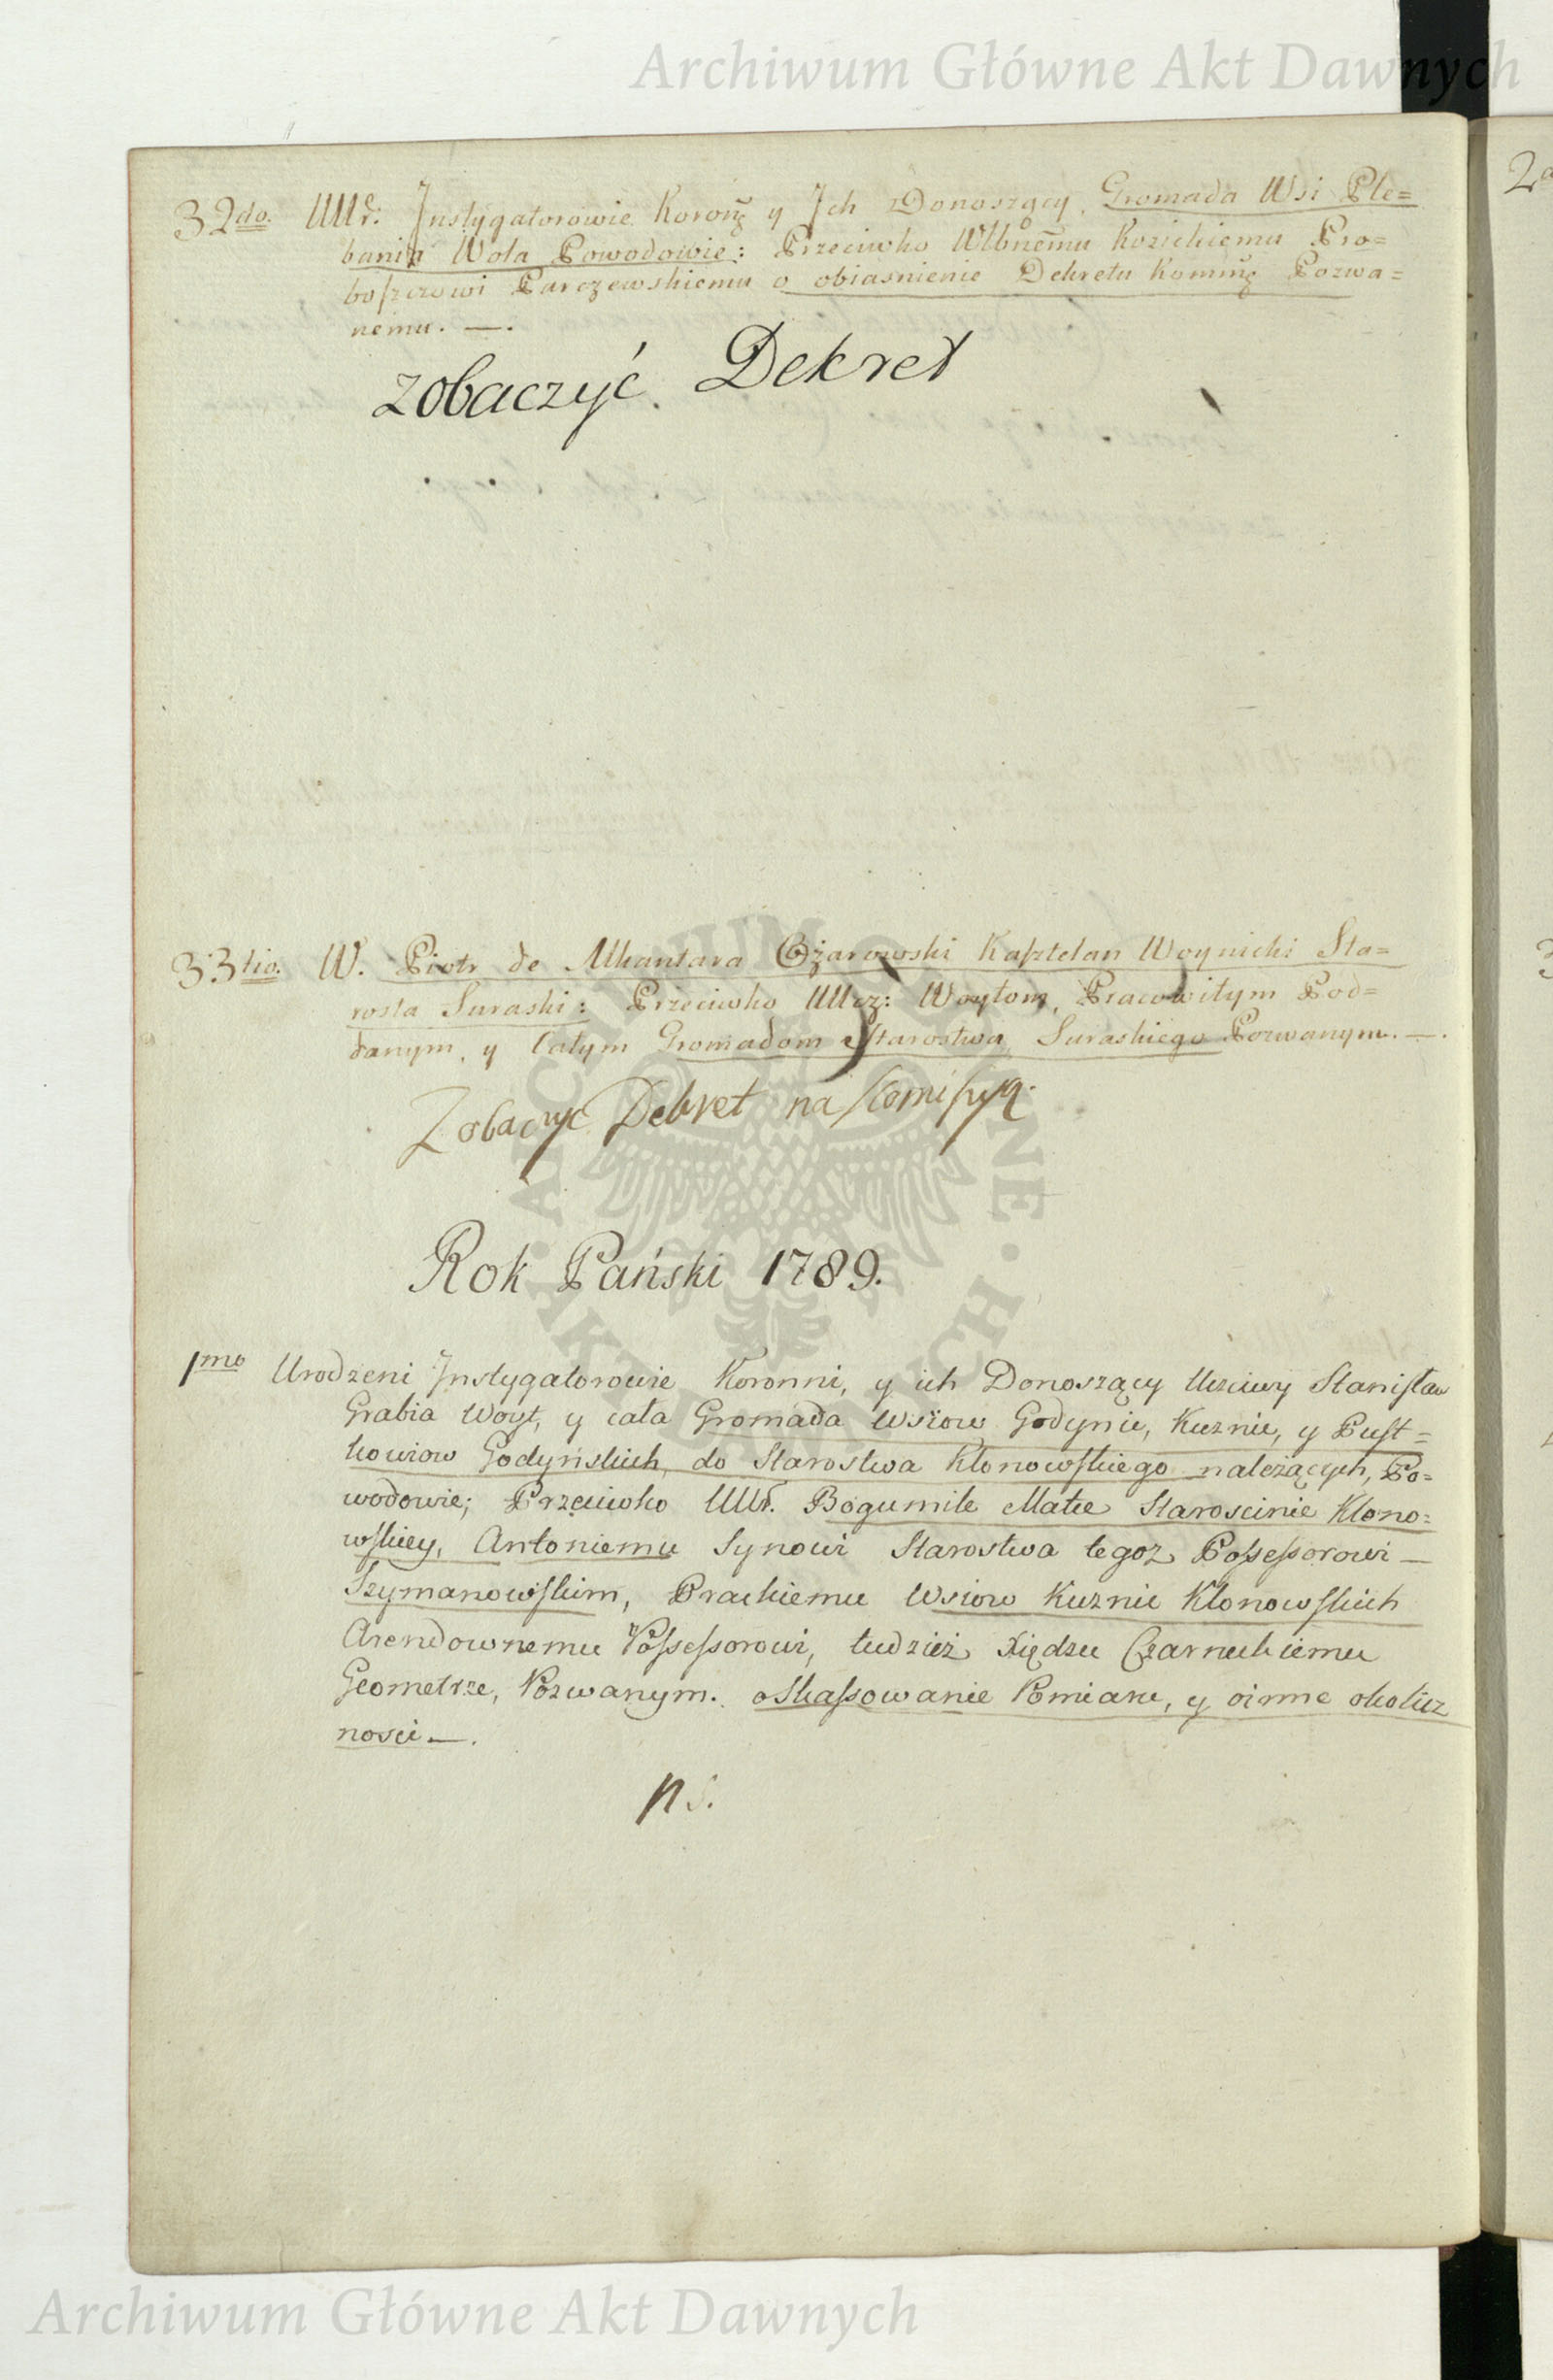 Archiwum Główne Akt Dawnych
32do. UUr: Instygatorowie Koroñ y Ich Donoszący, Gromada Wsi Ple=
bania Wola Powodowie: Przeciwko WJbnemu Kozickiemu Pro=
boszczowi Parczewskiemu o obiasnienie Dekretu Kommis Pozwa=
nemu. —.
zobaczyć. Dekret
33tio. W. Piotr de Alkantara Ożarowski Kasztelan Woynicki Sta=
rosta Suraski: Przeciwko UUcz: Woytom, Pracowitym Pod=
danym, y Całym Gromadom Starostwa Suraskiego Pozwanym. —.
Zobaczyc Dekret na Komissyą.
Rok Pański 1789.
1mo Urodzeni Instygatorowie Koronni, y ich Donoszący Uczciwy Stanisław
Grabia Woyt, y cała Gromada Wsiow Godynic, Kuznic, y Pust=
kowiow Godyńskich, do Starostwa Klonowskiego należących, Po=
wodowie; Przeciwko UUr. Bogumile Matce Starościnie Klono=
wskiey, Antoniemu Synowi Starostwa tegoz Possessorowi —
Szymanowskim, Prackiemu Wsiow Kuznic Klonowskich
Arendownemu Possessorowi, tudzież Xiędzu Czarneckiemu
Geometrze, Pozwanym. o Skassowanie Pomiaru, y o inne okolicz
nosci —.
ns.
ARCHIWUM GŁÓWNE · AKT DAWNYCH ·
Archiwum Główne Akt Dawnych